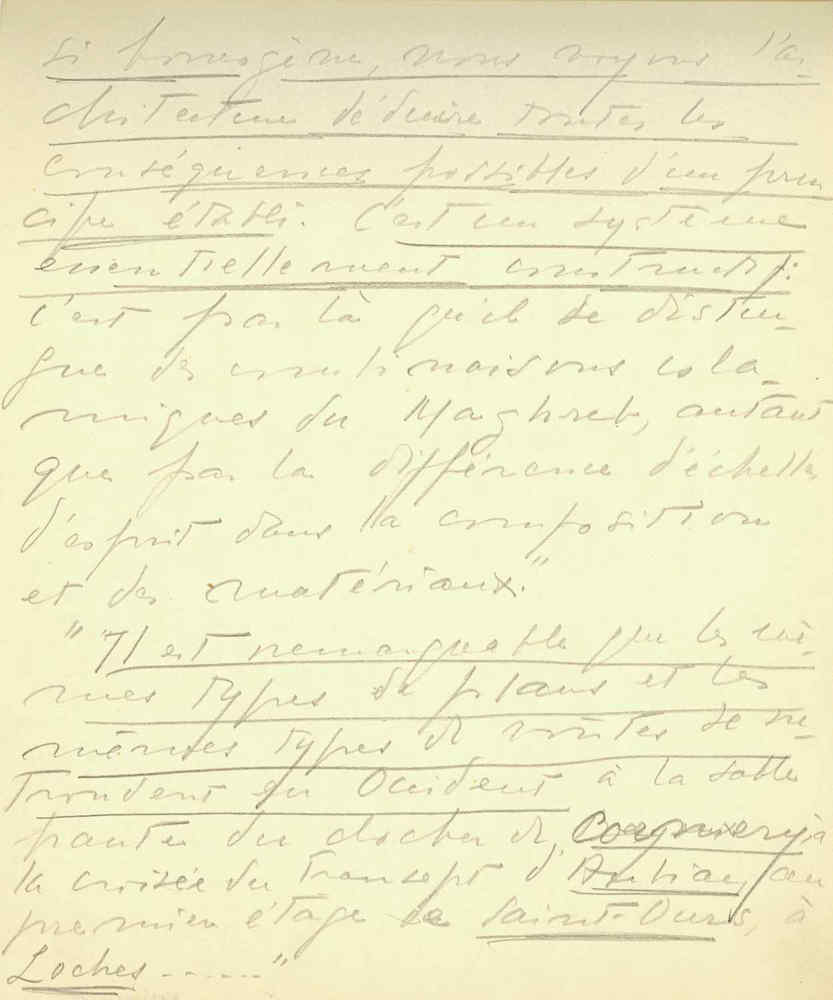 si homogène, nous voyons l'ar-
chitecture déduire toutes les
conséquences possibles d'un prin
cipe établi. C'est un système
essentiellement constructif:
c'est par là qu'il se distin-
gue des combinaisons isla-
miques du Maghreb, autant
que par la différence d'échelle
d'esprit dans la composition
et des matériaux."
"Il est remarquable que les mê-
mes types de plans et les
mêmes types de voûtes se re-
trouvent en Occident à la salle
haute du clocher de Cormery, à
la croisée du transept d'Aubiac, au
premier étage de Saint-Ours, à
Loches ......"